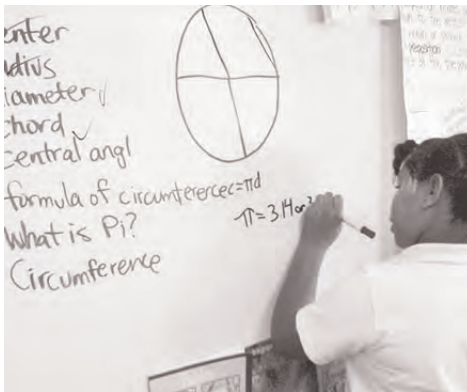 enter
adius
iameter ✓
chord ✓
central angl
formula of circumferencec=πd
What is Pi?
π=3.14 or
Circumference